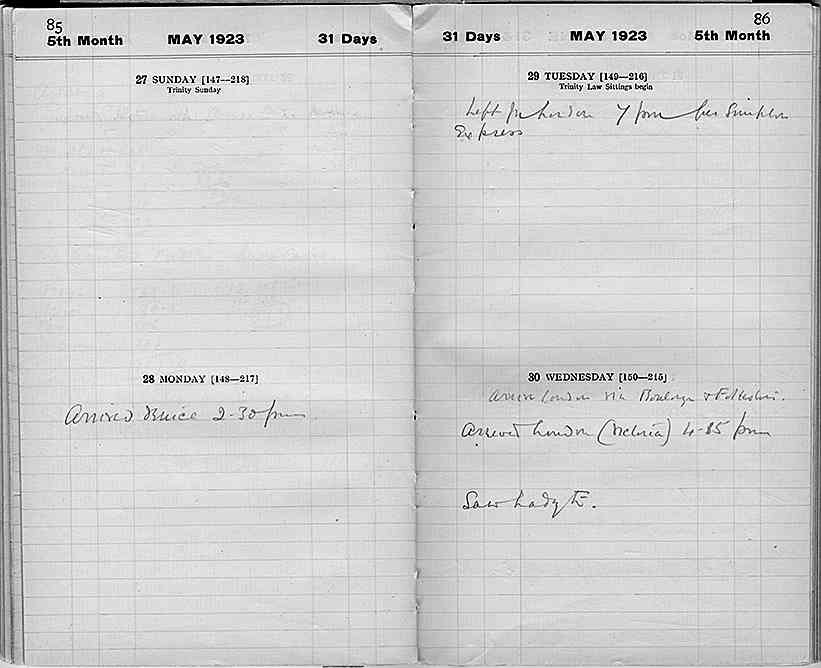 85
5th Month MAY 1923 31 Days
27 SUNDAY [147—218]
Trinity Sunday
28 MONDAY [148—217]
Arrived 2-30 pm
86
31 Days MAY 1923 5th Month
29 TUESDAY [149—216]
Trinity Law Sittings begin
Left for London 7 pm per Simplon
Express
30 WEDNESDAY [150—215]
Arrive London via Boulogne & Folkestone.
Arrived London (Victoria) 4-85 pm
Saw Lady E.